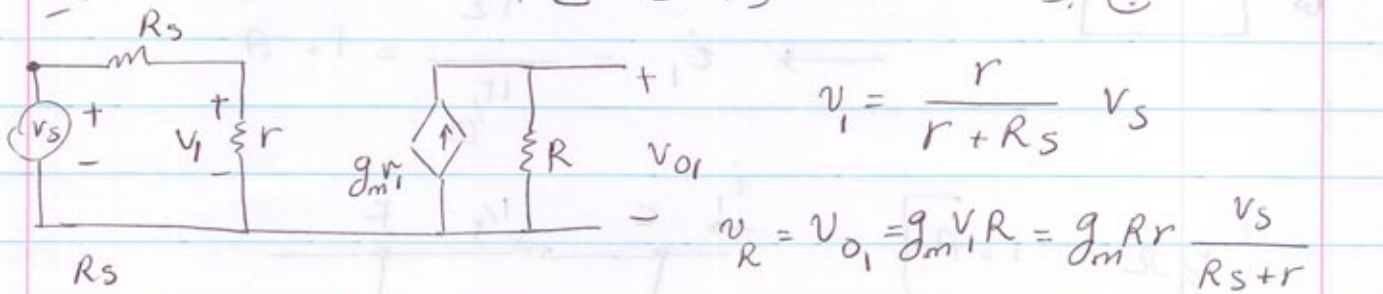 Rs
vs + - + V₁ - r gₘv₁ R + V₀₁ -
v₁ = r / (r + Rs) Vs
v_R = v₀₁ = gₘV₁R = gₘRr Vs / (Rs + r)
Rs